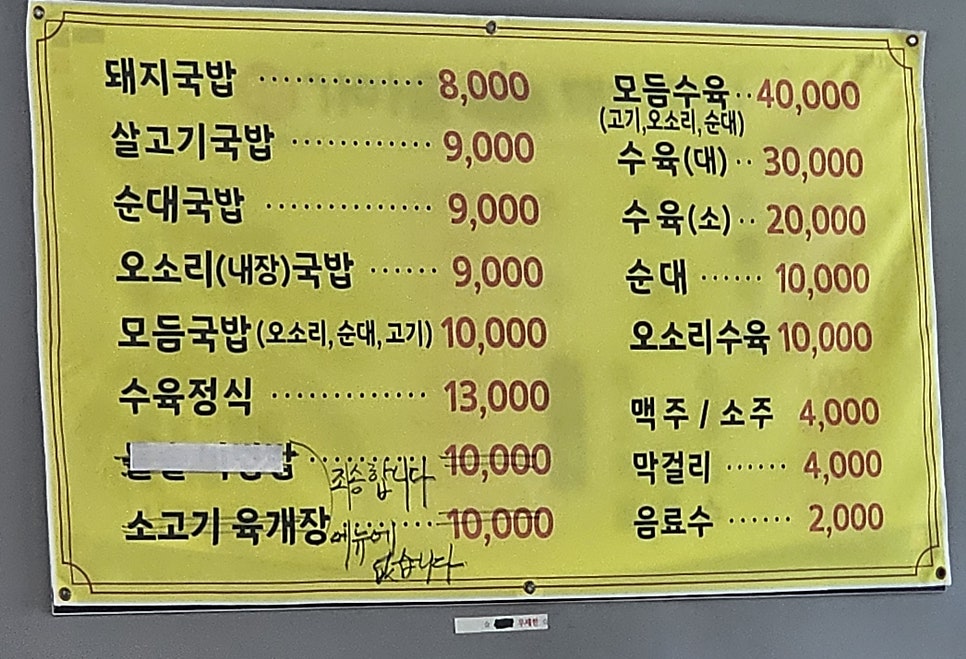 돼지국밥 ············· 8,000
살고기국밥 ············ 9,000
순대국밥 ·············· 9,000
오소리(내장)국밥 ······ 9,000
모듬국밥(오소리,순대,고기) 10,000
수육정식 ············· 13,000
10,000
소고기 육개장 10,000
죄송합니다
메뉴에
없습니다
모듬수육··40,000
(고기,오소리,순대)
수육(대)··30,000
수육(소)··20,000
순대 ······ 10,000
오소리수육 10,000
맥주 / 소주 4,000
막걸리 ······ 4,000
음료수 ······ 2,000